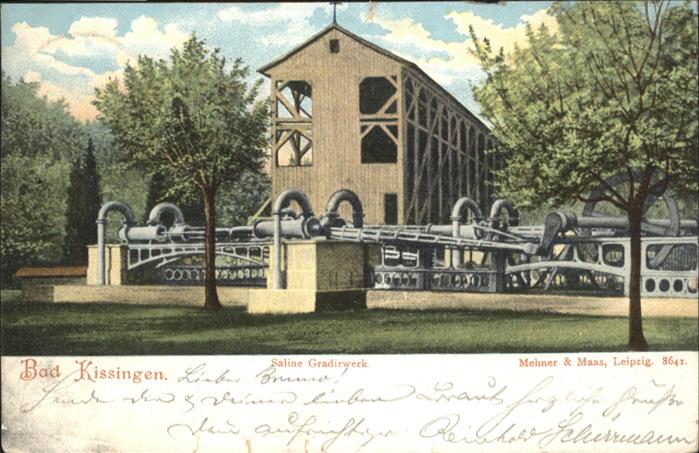 Bad Kissingen.
Saline Gradirwerk.
Mehner & Maas, Leipzig. 8641.
Lieber Bruno!
Sende dir & Deiner lieben Braut herzliche Grüße
Dein aufrichtiger Reinhold Schürmann